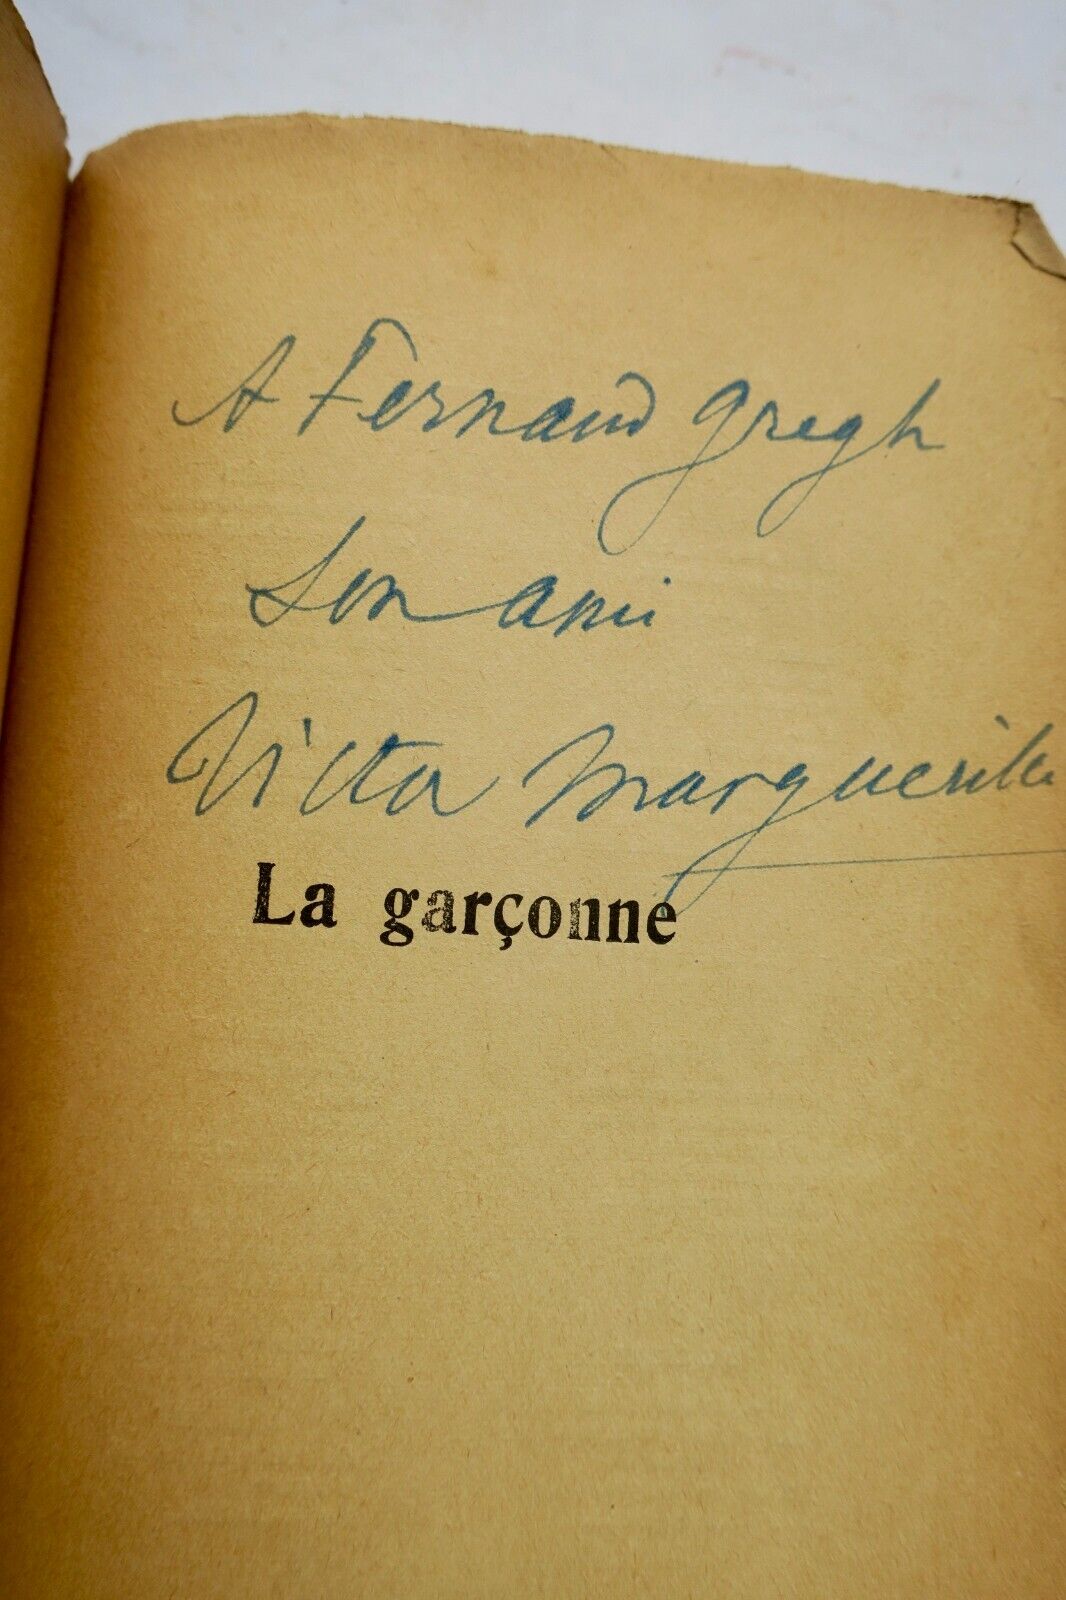 A Fernand Gregh
Son ami
Victor Margueritte
La garçonne